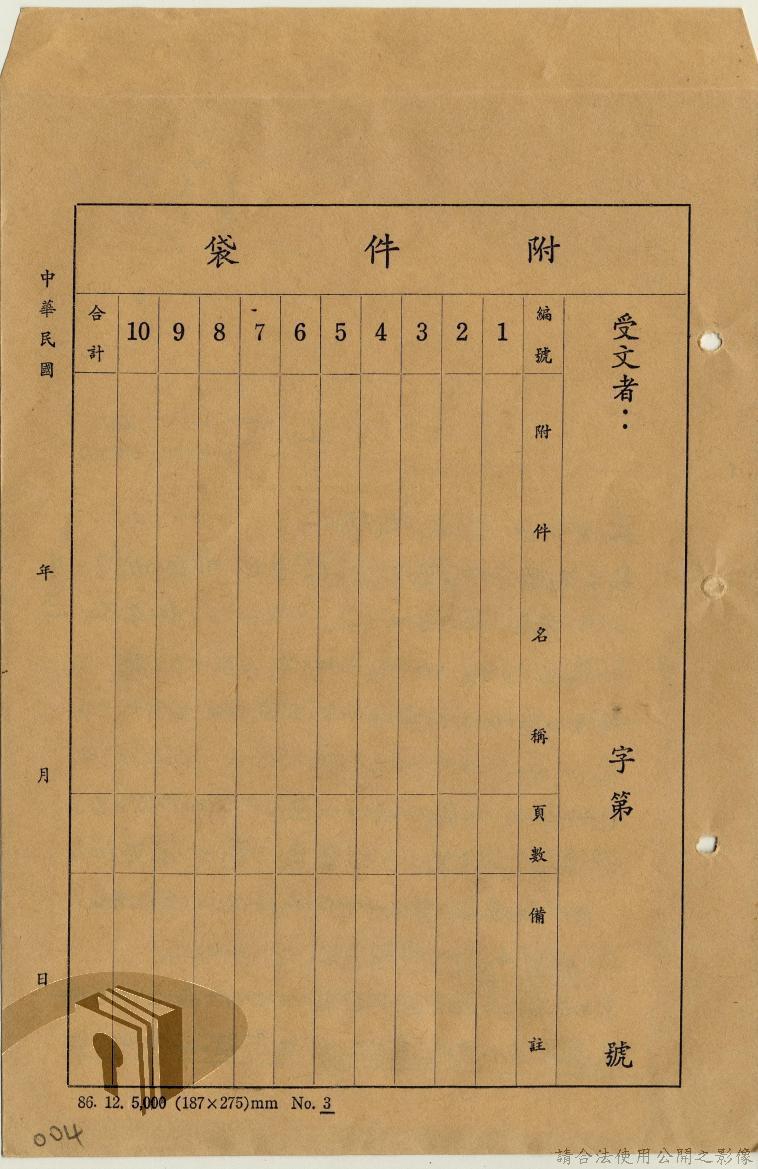 附件袋
受文者：
字第
號
編號
附件名稱
頁數
備註
1
2
3
4
5
6
7
8
9
10
合計
中華民國
年
月
日
86. 12. 5,000 (187×275)mm No. 3
004
請合法使用公開之影像